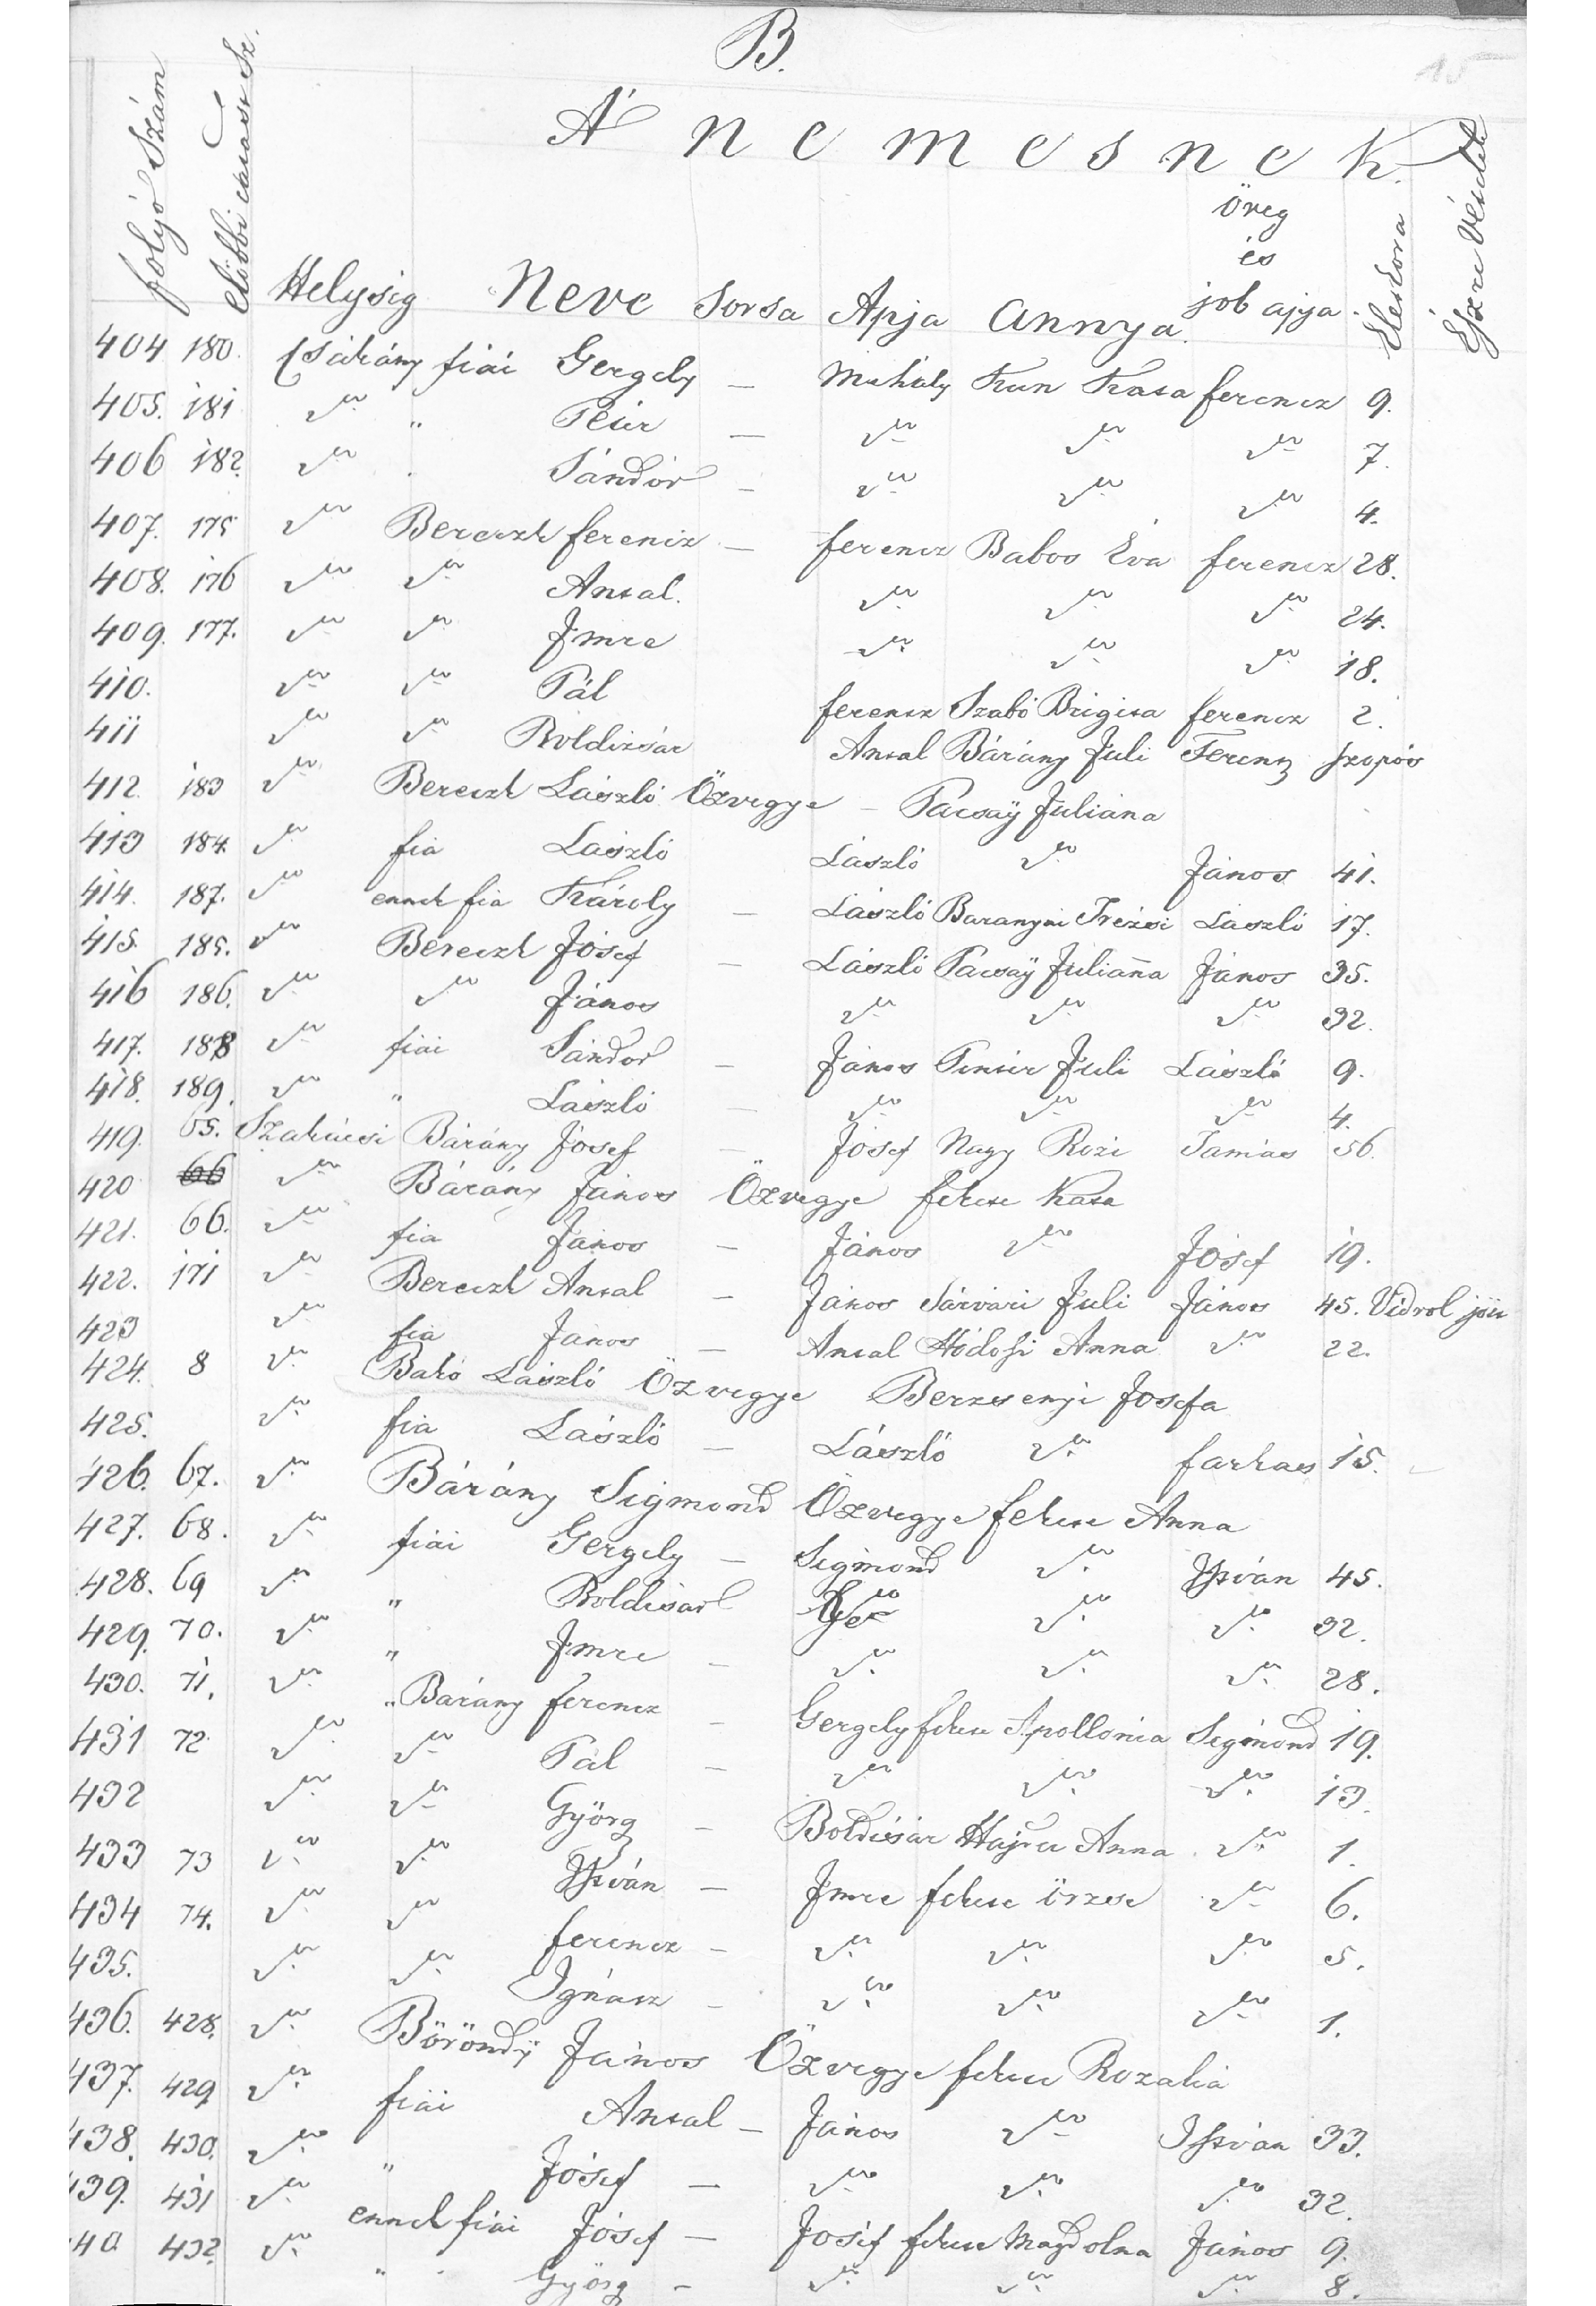 B.
15
A' nemesnek.
folyó Szám
elöbbi Sz.
Helység Neve Sorsa Apja Annya öreg és job apja Életkora Észre Vételek
404 180. Csákány fiai Gergely — Mihály Kun Kata ferencz 9.
405. 181 〃 " Péter — 〃 〃 〃 7.
406 182. 〃 Sándor — 〃 〃 〃 4.
407. 175 〃 Bereczk ferencz — ferencz Babos Éva ferencz 28.
408. 176 〃 〃 Antal. 〃 〃 〃 24.
409. 177. 〃 〃 Imre 〃 〃 〃 18.
410. 〃 〃 Pál ferencz Szabó Brigita ferencz 2.
411 〃 〃 Boldizsár Antal Bárány Juli Ferentz szopós
412. 183 〃 Bereczk László Özvegye — Tacsaÿ Juliána
413 184. 〃 fia László László 〃 János 41.
414. 187. 〃 ennek fia Károly — László Baranyai Trézsi László 17.
415. 185. 〃 Bereczk Jósef — László Tacsaÿ Julianna János 35.
416 186. 〃 〃 János 〃 〃 〃 32.
417. 188 〃 fiai Sándor — János Juli László 9.
418. 189. 〃 " László — 〃 〃 〃 4.
419. 65. Szakácsi Bárány Jósef — Jósef Nagy Rozi Tamás 56.
420 66 〃 Bárány János Özvegye fekete Kata
421. 66. 〃 fia János — János 〃 Jósef 19.
422. 171 〃 Bereczk Antal — János Sárvári Juli János 45. Vidrol jött
423 〃 fia János — Antal Hódosi Anna 〃 22.
424. 8 〃 Bakó László Özvegye Berzsenyi Josefa
425. 〃 fia László — László 〃 farkas 15.
426. 67. 〃 Bárány Sigmond Özvegye fekete Anna
427. 68. 〃 fiai Gergely — Sigmond 〃 István 45.
428. 69 〃 " Boldisár 〃 〃 〃 32.
429. 70. 〃 " Imre — 〃 〃 〃 28.
430. 71. 〃 " Bárány ferencz — Gergely fekete Apollónia Sigmond 19.
431 72 〃 〃 Pál — 〃 〃 〃 13.
432 〃 〃 György — Boldisár Anna 〃 1.
433 73 〃 〃 István — Imre fekete örzse 〃 6.
434 74. 〃 〃 ferencz — 〃 〃 〃 5.
435. 〃 〃 Ignácz — 〃 〃 〃 1.
436. 428. 〃 Böröndÿ János Özvegye fekete Rozália
437. 429 〃 fiai Antal — János 〃 István 33.
438. 430. 〃 " Jósef — 〃 〃 〃 32.
439. 431 〃 ennek fiai Jósef — Joséf fekete Magdolna János 9.
40 432. 〃 " György — 〃 〃 〃 8.